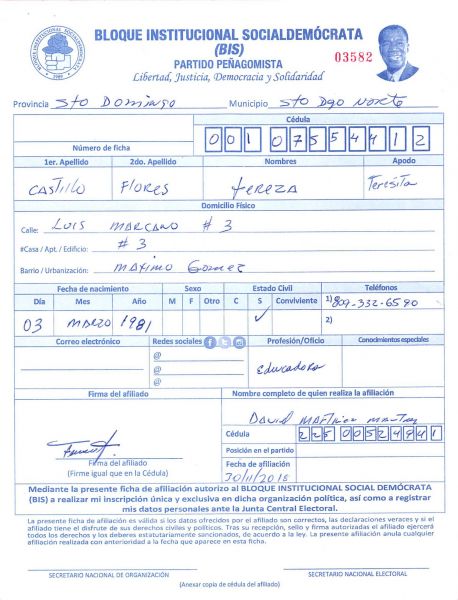 BLOQUE INSTITUCIONAL SOCIALDEMÓCRATA
(BIS)
PARTIDO PEÑAGOMISTA
Libertad, Justicia, Democracia y Solidaridad
03582
BLOQUE INSTITUCIONAL SOCIALDEMOCRATA
Provincia Sto Domingo Municipio Sto Dgo Norte
Cédula
Número de ficha 001 0755441 2
1er. Apellido 2do. Apellido Nombres Apodo
Castillo Flores tereza Teresita
Domicilio Físico
Calle: Luis Marcano # 3
#Casa / Apt. / Edificio: # 3
Barrio / Urbanización: Maximo Gomez
Fecha de nacimiento Sexo Estado Civil Teléfonos
Día Mes Año M F Otro C S Conviviente 1) 809-332-6590
03 Marzo 1981 ✓ 2)
Correo electrónico Redes sociales Profesión/Oficio Conocimientos especiales
@
@
@
Educadora
Firma del afiliado Nombre completo de quien realiza la afiliación
David Martinez
Cédula 225 0052484 1
Posición en el partido
Firma del afiliado
(Firme igual que en la Cédula)
Fecha de afiliación
30/11/2018
Mediante la presente ficha de afiliación autorizo al BLOQUE INSTITUCIONAL SOCIAL DEMÓCRATA
(BIS) a realizar mi inscripción única y exclusiva en dicha organización política, así como a registrar
mis datos personales ante la Junta Central Electoral.
La presente afiliación es válida si los datos ofrecidos por el afiliado son correctos, las declaraciones veraces y si el
afiliado tiene el disfrute de sus derechos civiles y políticos. Tras su recepción, sello y firma autorizadas el afiliado ejercerá
todos los derechos y los deberes estatutariamente sancionados, de acuerdo a la ley. La presente afiliación anula cualquier
afiliación realizada con anterioridad a la fecha que aparece en esta ficha.
SECRETARIO NACIONAL DE ORGANIZACIÓN SECRETARIO NACIONAL ELECTORAL
(Anexar copia de cédula del afiliado)